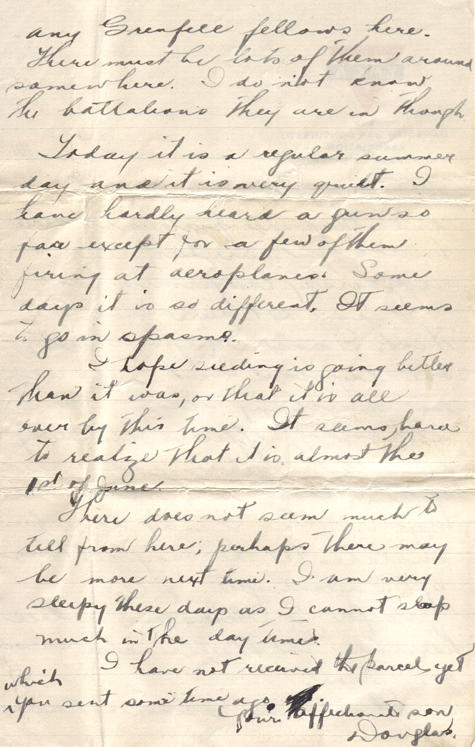 any Grenfell fellows here.
There must be lots of them around
somewhere. I do not know
the battalions they are in though
Today it is a regular summer
day and it is very quiet. I
have hardly heard a gun so
far except for a few of them
firing at aeroplanes. Some
days it is so different. It seems
to go in spasms.
I hope seeding is going better
than it was, or that it is all
over by this time. It seems hard
to realize that it is almost the
1st of June.
There does not seem much to
tell from here, perhaps there may
be more next time. I am very
sleepy these days as I cannot sleep
much in the day time.
I have not received the parcel yet
which
you sent some time ago.
Your affectionate son
Douglas.